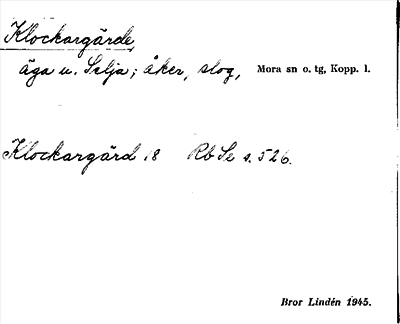 Klockargärde,
äga u. Selja; åker, slog, Mora sn o. tg, Kopp. l.
Klockargärd 18 Rb Se s. 526.
Bror Lindén 1945.